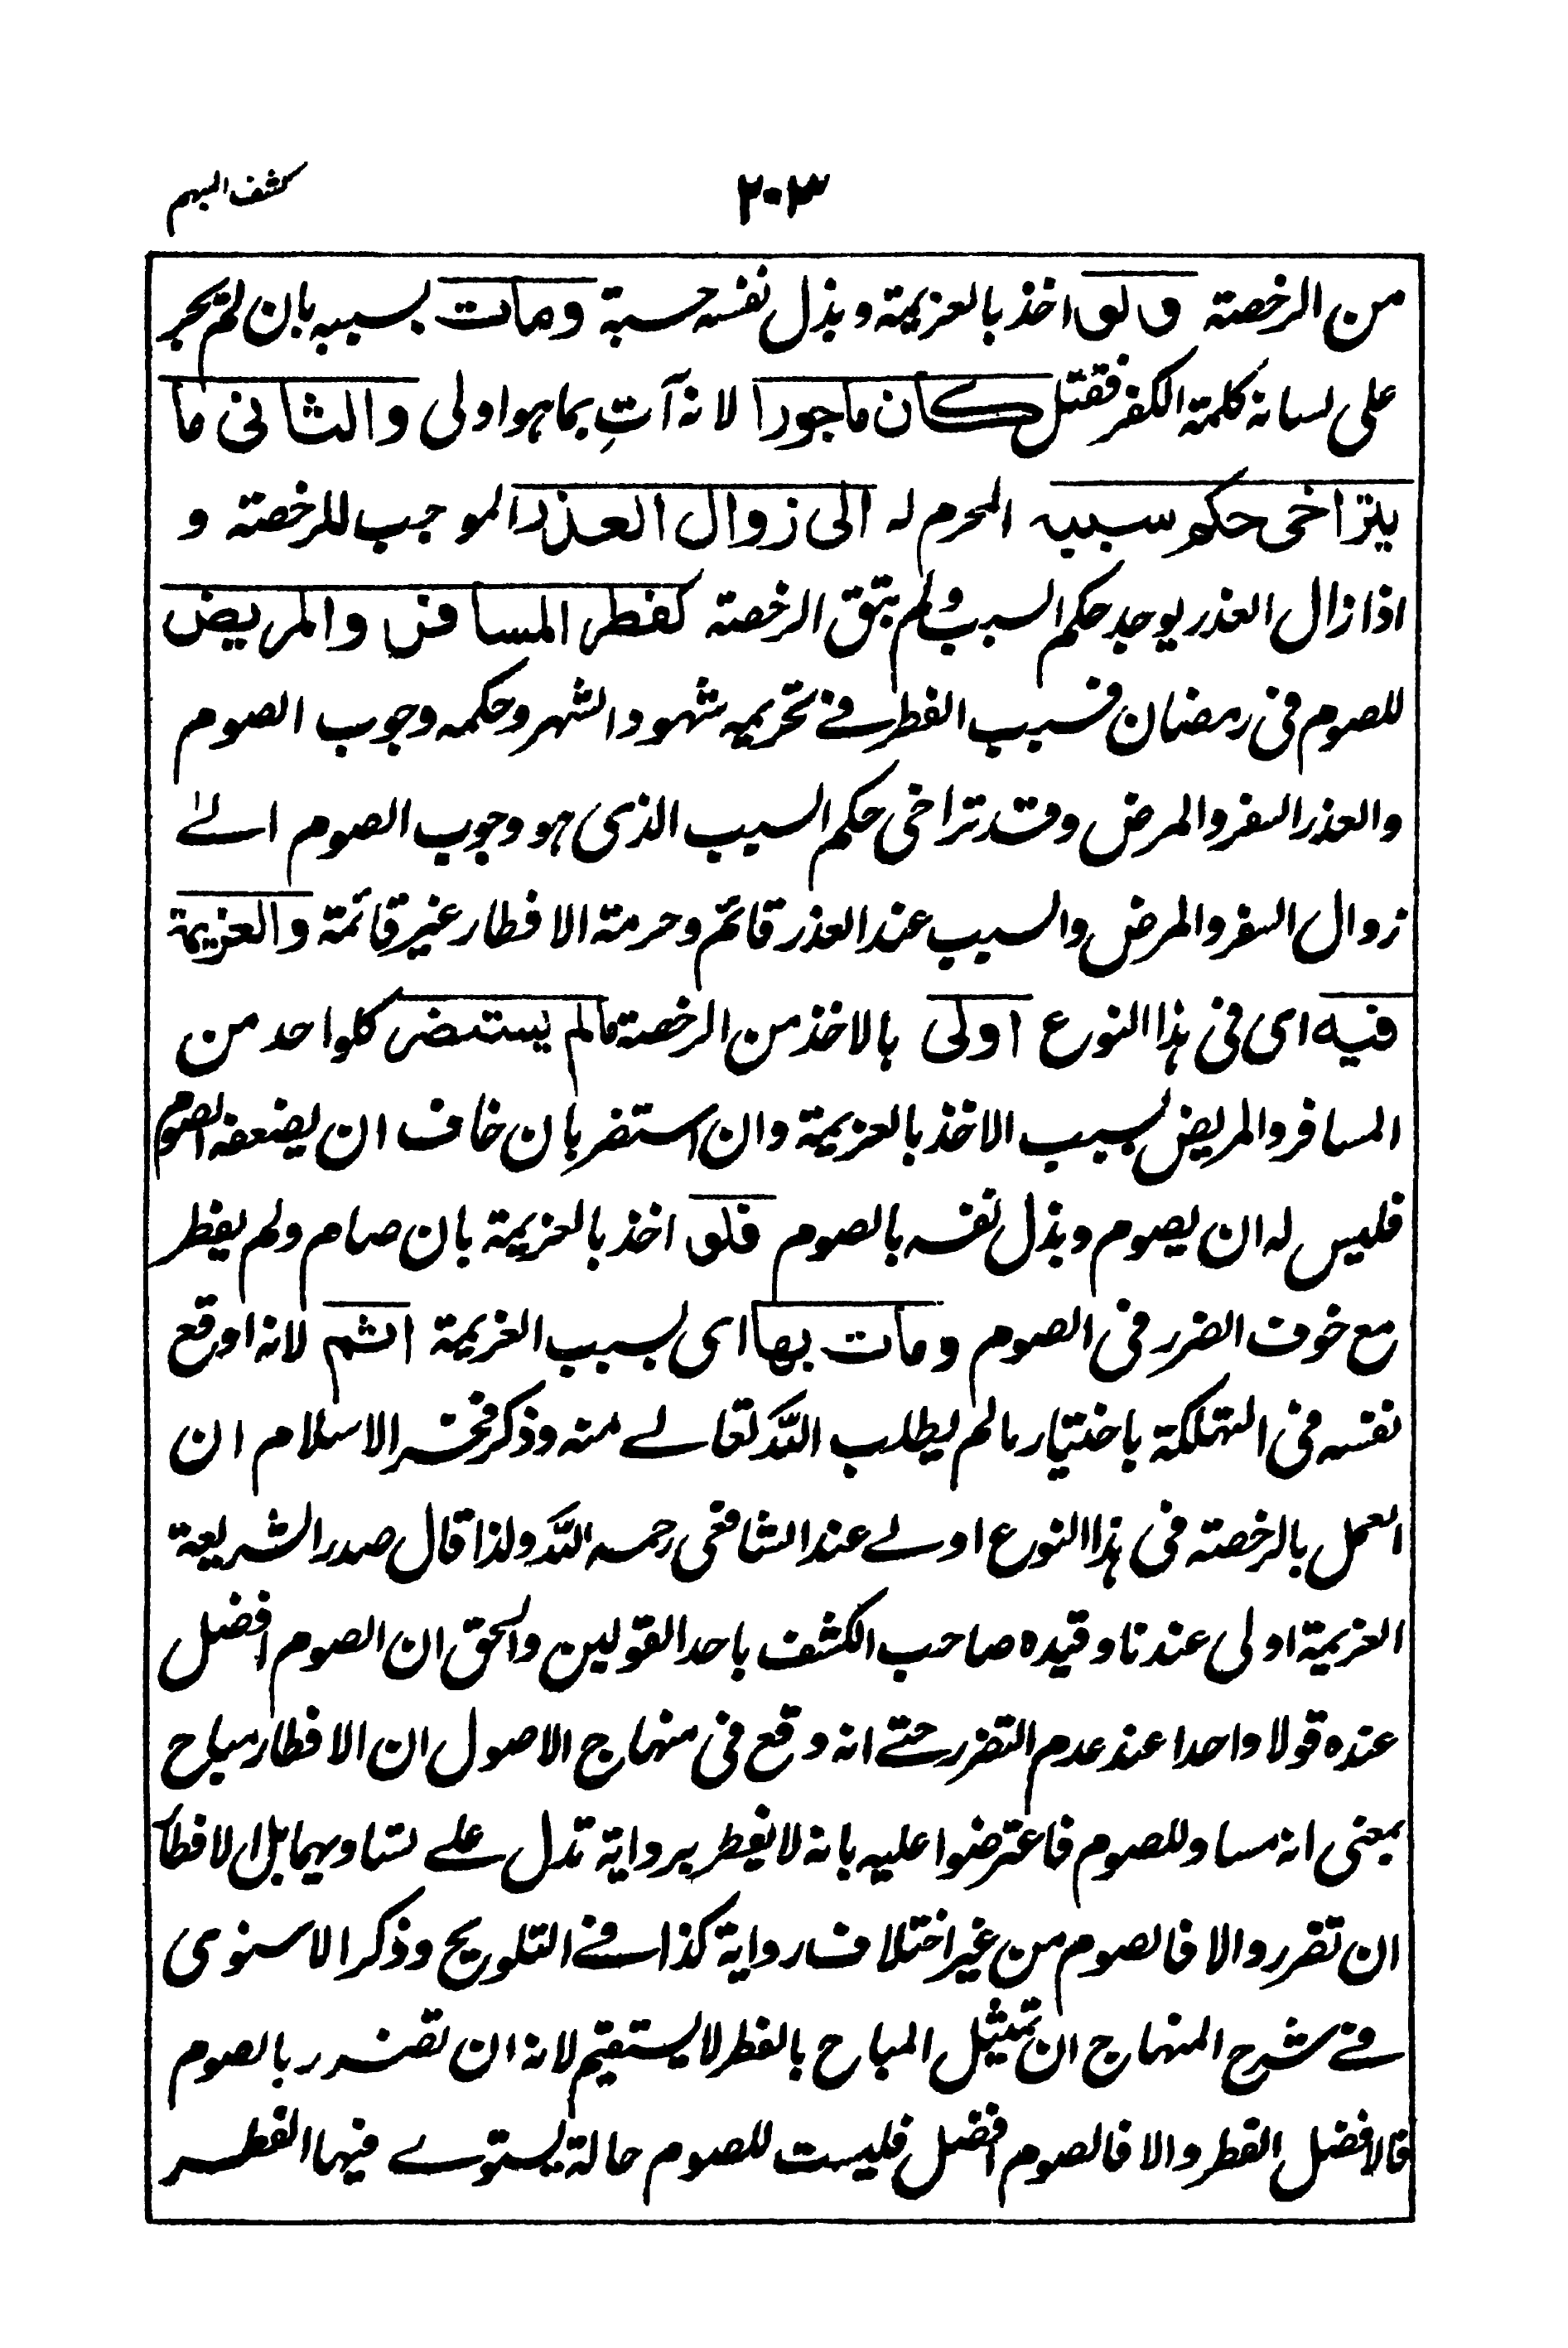 كشف المبهم
٢٠٣
من الرخصة ولو اخذ بالعزيمة وبذل نفسه حسبة ومات بسببه بان لم يجر
على لسانه كلمة الكفر فقتل كان ماجورا لانه آتِ بما هو اولى والثاني ما
يتراخى حكم سببه المحرم له الى زوال العذر الموجب للرخصة و
اذا زال العذر يوجد حكم السبب ولم تبق الرخصة كفطر المسافر والمريض
للصوم فى رمضان فسبب الفطر فے تحريمه شهود الشهر وحكمه وجوب الصوم
والعذر السفر والمرض وقد تراخى حكم السبب الذى هو وجوب الصوم الےٰ
زوال السفر والمرض والسبب عند العذر قائم وحرمة الافطار غير قائمة والعزيمة
فيه اى فى هذا النوع اولى بالاخذ من الرخصة مالم يستضر كلواحد من
المسافر والمريض بسبب الاخذ بالعزيمة وان استضر بان خاف ان يضعفه الصوم
فليس له ان يصوم وبذل نفسه بالصوم فلو اخذ بالعزيمة بان صام ولم يفطر
مع خوف الضرر فى الصوم ومات بها اى بسبب العزيمة اثم لانه اوقع
نفسه فى التهلكة باختيار مالم يطلب الله تعالے منه وذكر فخر الاسلام ان
العمل بالرخصة فى هذا النوع اولے عند الشافعى رحمه الله ولذا قال صدر الشريعة
العزيمة اولى عندنا وقيده صاحب الكشف باحد القولين والحق ان الصوم افضل
عنده قولا واحدا عند عدم التضرر حتے انه وقع فى منهاج الاصول ان الافطار مباح
بمعنى انه مساو للصوم فاعترضوا عليه بانه لا نعطر برواية تدل علے تساويهما بل الافطار
ان تضرر والا فالصوم من غير اختلاف رواية كذا فے التلويح وذكر الاسنوى
فے شرح المنهاج ان تمثيل المباح بالفطر لا يستقيم لانه ان تضرر بالصوم
فالافضل الفطر والا فالصوم افضل فليست للصوم حالة يستوے فيها الفطر